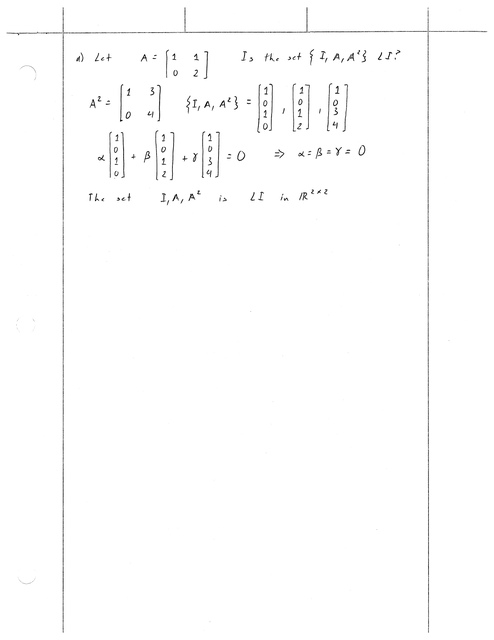 a) Let A = [1 1; 0 2] Is the set {I, A, A²} LI?
A² = [1 3; 0 4] {I, A, A²} = [1; 0; 1; 0], [1; 0; 1; 2], [1; 0; 3; 4]
α [1; 0; 1; 0] + β [1; 0; 1; 2] + γ [1; 0; 3; 4] = 0 ⇒ α = β = γ = 0
The set I, A, A² is LI in ℝ²ˣ²